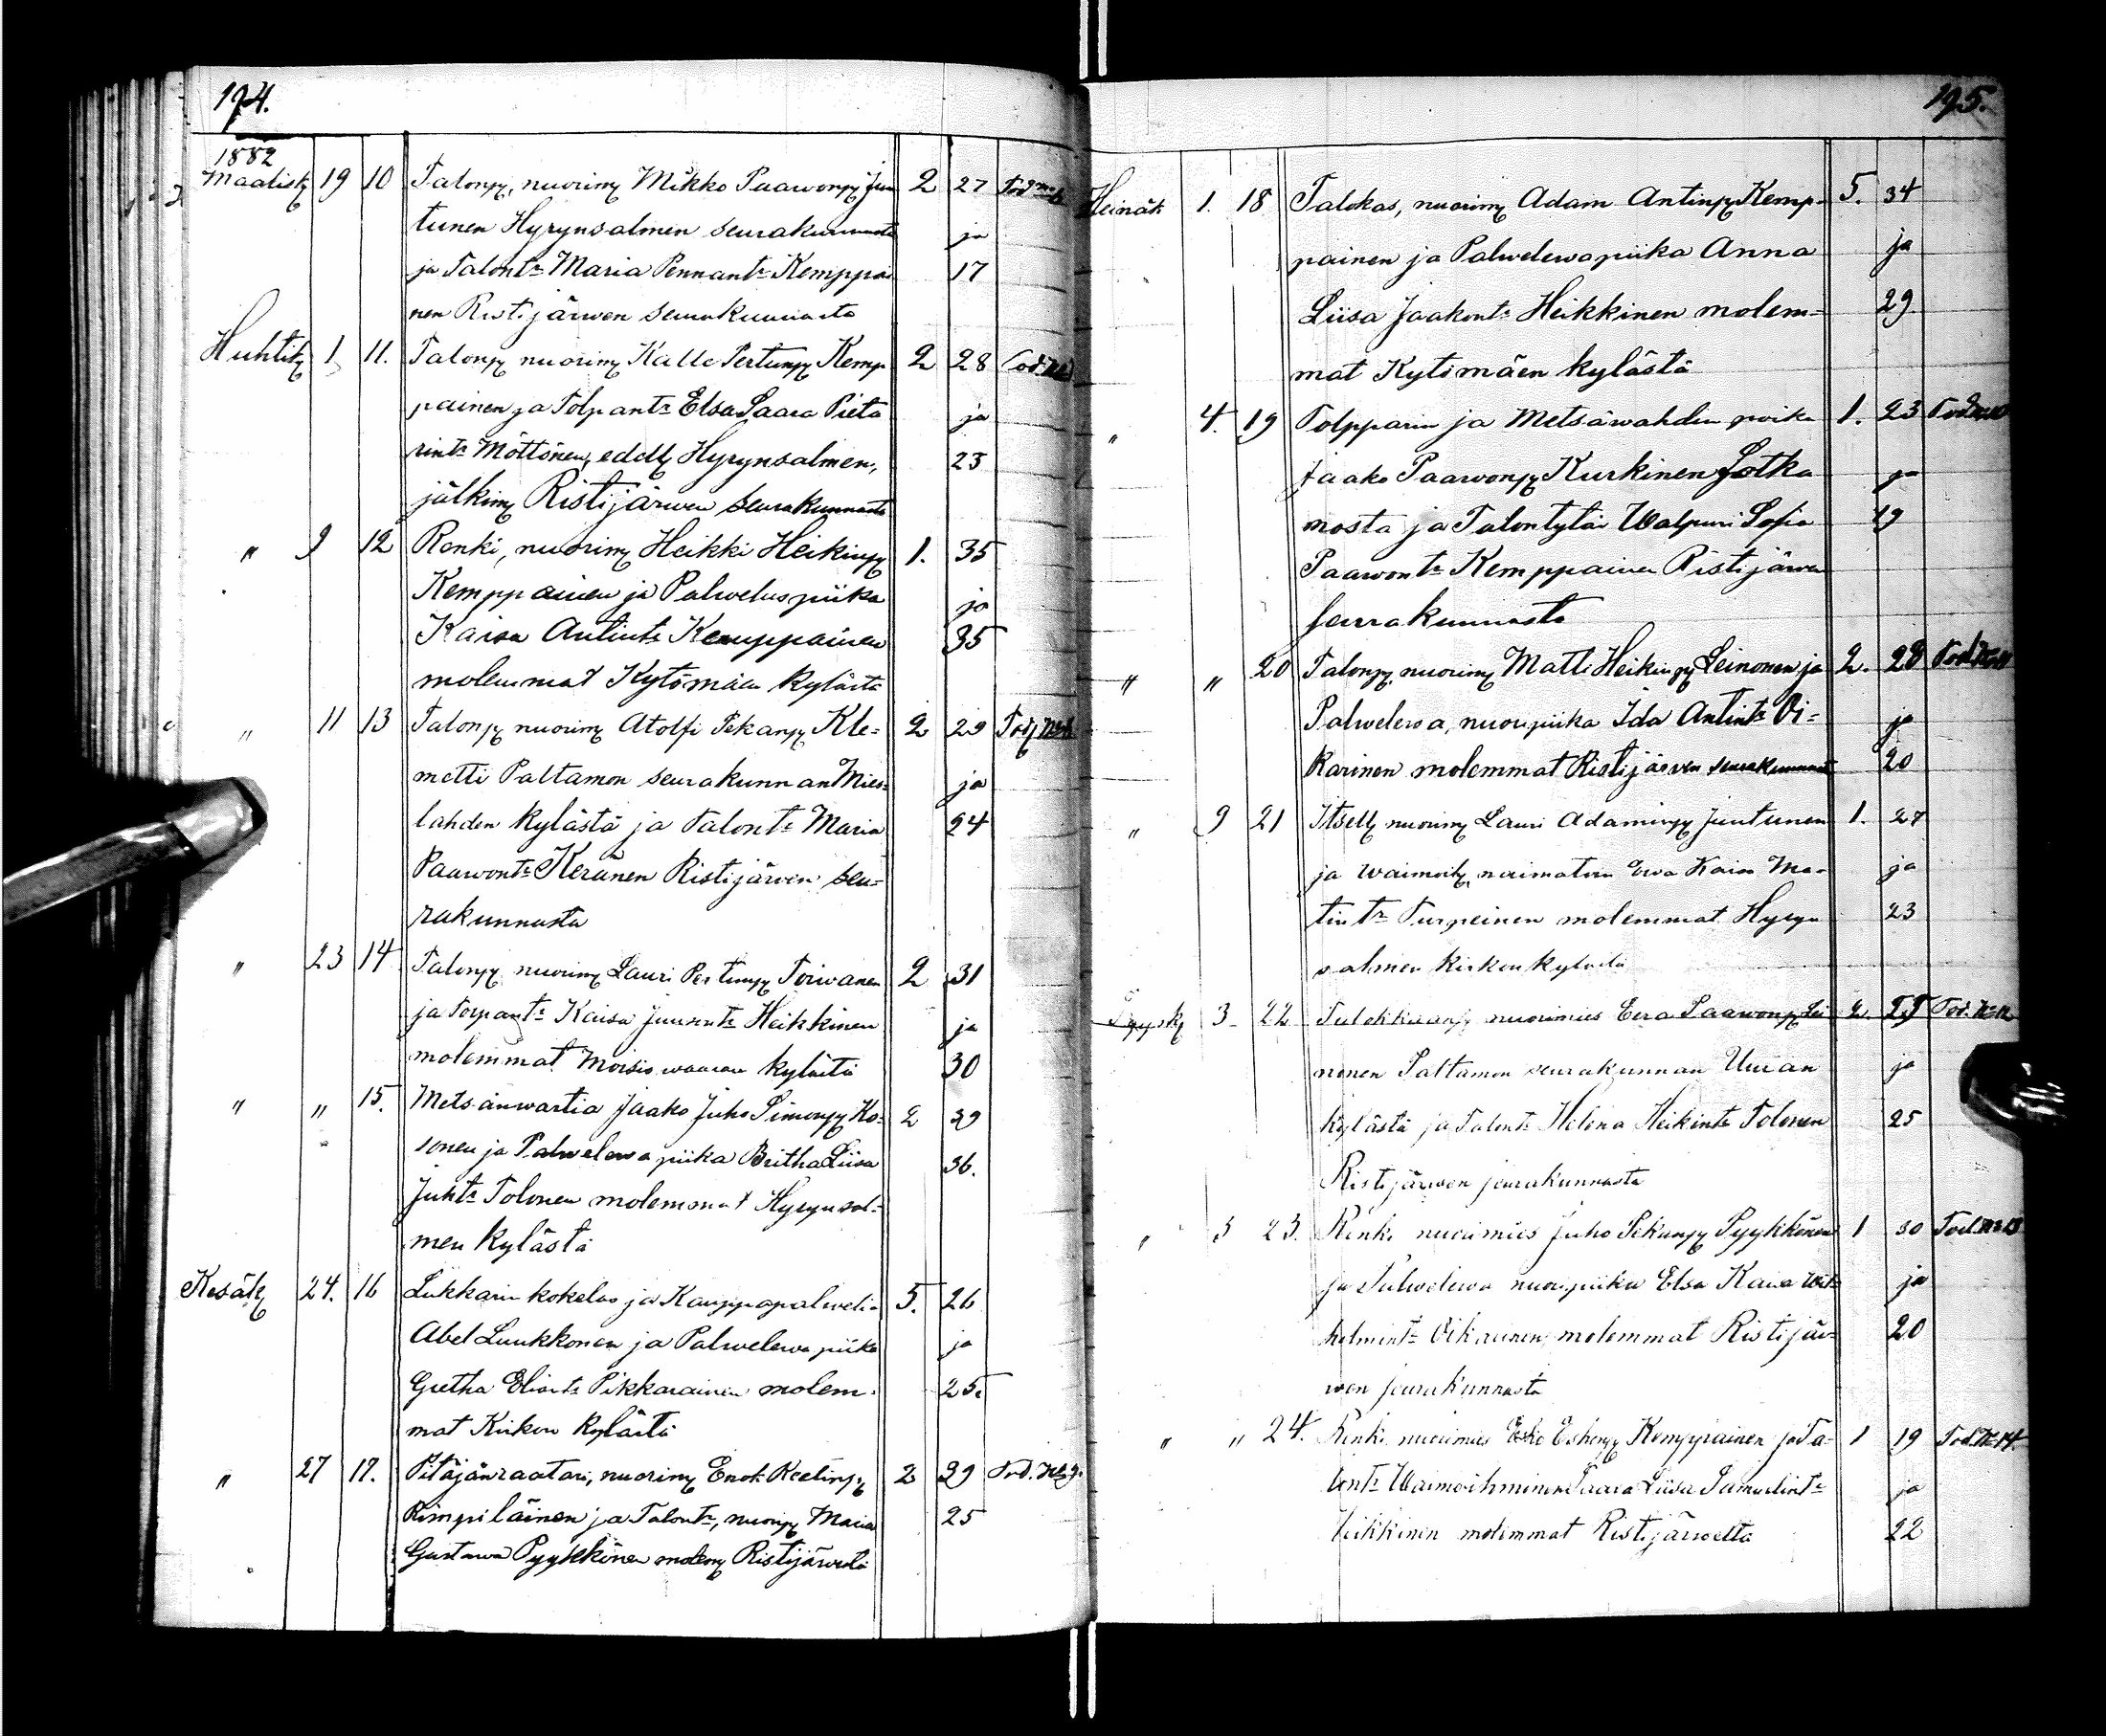 194.
1882
Maalisk 19 10 Talonp. nuorim Mikko Paawonp Jun 2 27
tunen Hyrynsalmen seurakunnasta ja
ja Talont:r Maria Pennant:r Kemppai 17
nen Ristijärwen seurakunnasta
Huhtik 1 11. Talonp nuorim Kalle Pertunp Kemp 2 28
painen ja Tolpant:r Elsa Saara Pieta ja
rint:r Möttönen, edell Hyrynsalmen, 23
jälkim Ristijärwen seurakunnasta
" 9 12 Renki, nuorim Heikki Heikinp 1. 35
Kemppainen ja Palweluspiika ja
Kaisa Antint:r Kemppainen 35
molemmat Kytömäen kylästä
" 11 13 Talonp nuorim Atolfi Pekanp Kle= 2 29
metti Paltamon seurakunnan Mies= ja
lahden kylästä ja Talont:r Maria 24
Paawont:r Keränen Ristijärwen seu=
rakunnasta
" 23 14 Talonp nuorim Lauri Pertunp Toiwanen 2 31
ja torpant:r Kaisa Juunnt:r Heikkinen ja
molemmat Moisiowaaran kylästä 30
" " 15. Metsänwartia Jaako Juho Simonp Ko= 2 39
sonen ja Palwelewa piika Britha Liisa 36.
Juht:r Tolonen molemmat Hyrynsal=
men kylästä
Kesäk 24. 16 Lukkarin kokelas ja Kauppapalwelia 5. 26
Abel Luukkonen ja Palwelewa piika ja
Gretha Eliant:r Pikkarainen molem= 25.
mat Kirkon kylästä
" 27 17. Pitäjänraatari, nuorim Enok Reetinp 2 29 Tod. No 9.
Rimpiläinen ja Talont:r, nuorip Maria 25
Gustawa Pyykkönen molem Ristijärweltä
195.
Heinäk 1. 18 Talokas, nuorim Adam Antinp Kemp= 5. 34
painen ja Palwelewapiika Anna ja
Liisa Jaakont:r Heikkinen molem= 29.
mat Kytömäen kylästä
" 4. 19 Tolpparin ja Metsäwahdin poika 1. 23
Jaako Paawonp Kurkinen Sotka ja
mosta ja Talontytär Walpuri Sofia 19
Paawont:r Kemppainen Ristijärwen
seurakunnasta
" " 20 Talonp. nuorim Matti Heikinp Leinonen ja 2. 28
Palwelewa, nuoripiika Ida Antint:r Oi= ja
karinen molemmat Ristijärwen seurakunnasta 20
" 9 21 Itsell nuorim Lauri Adaminp Juntunen 1. 27
ja waimoih, naimatoin Ewa Kaisa Ma= ja
tint:r Turpeinen molemmat Hyryn 23
salmen kirkon kylästä
Syysk 3 22 Talokkaanp nuorimies Eera Paawonp Lei 2.
nonen Paltamon seurakunnan Uuran ja
kylästä ja Talont:r Helena Heikint:r Tolonen 25
Ristijärwen seurakunnasta
" 3 23. Renki nuorimies Juho Pekanp Pyykkönen 1 30 Tod. No 13
ja Palwelewa nuoripiika Elsa Kaisa Wil= ja
helmint:r Oikarinen, molemmat Ristijär= 20
wen seurakunnasta
" " 24. Renki nuorimies Esko Eskonp Kemppainen ja Ta= 1 19 Tod. No 14.
lont:r Waimoihminen Saara Liisa Samuelint:r ja
Heikkinen molemmat Ristijärweltä 22